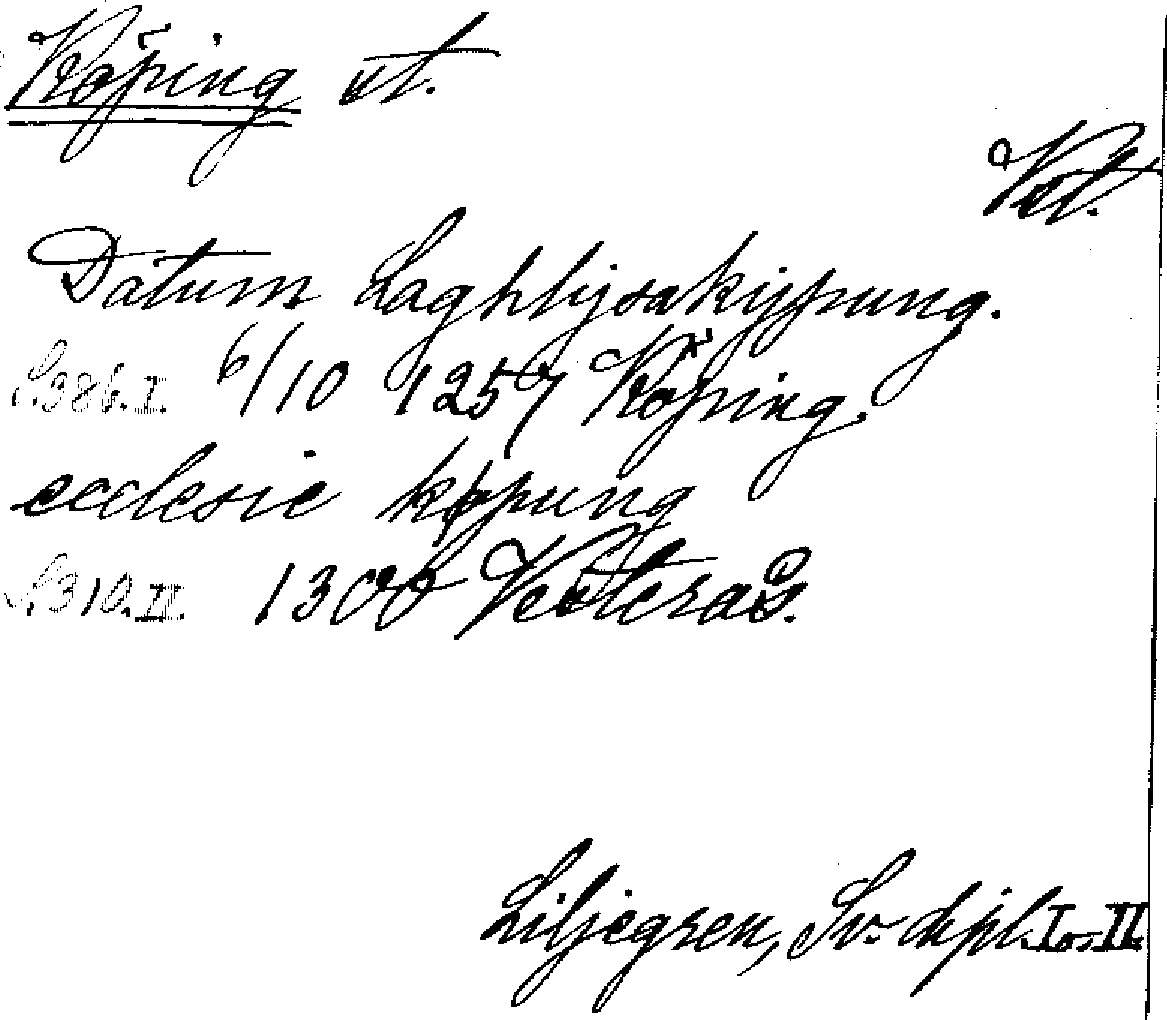 Köping st.
Vstm.
Datum Laghlysakypung.
S. 386. I. 6/10 1257 Köping.
ecclesie køpung
S. 310. II. 1300 Vesterås.
Liljegren, Sv. dipl. I o. II.